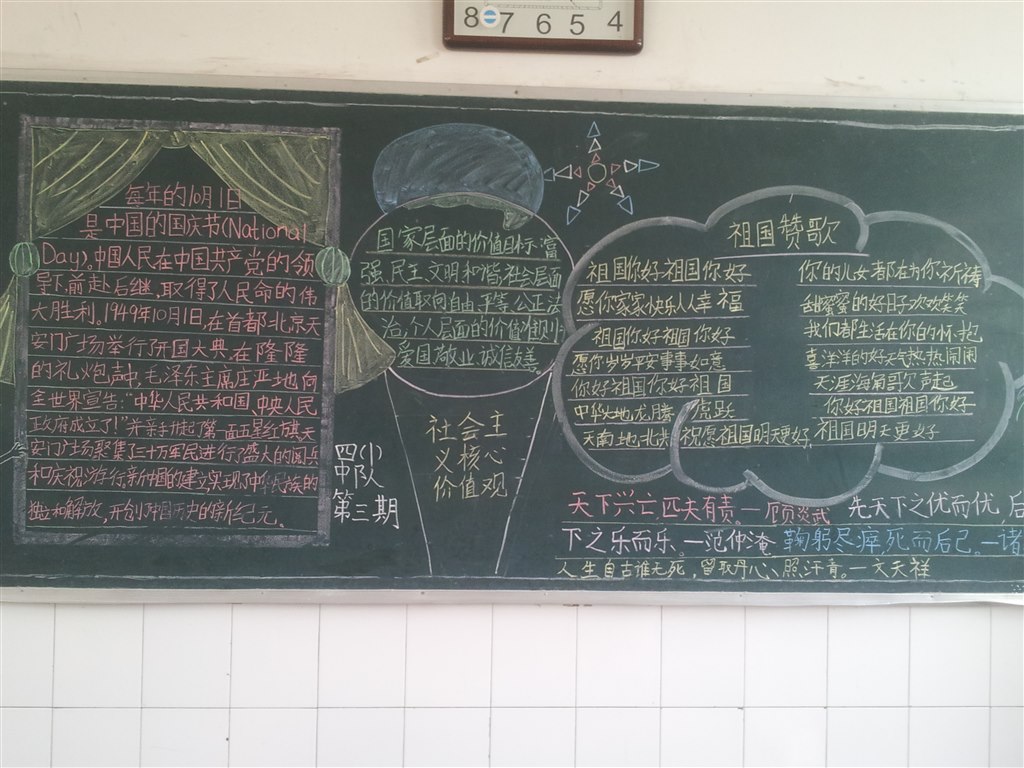 8 7 6 5 4
每年的10月1日
是中国的国庆节(National
Day)。中国人民在中国共产党的领
导下,前赴后继,取得了人民命的伟
大胜利。1949年10月1日,在首都北京天
安门广场举行了开国大典,在隆隆
的礼炮声中,毛泽东主席庄严地向
全世界宣告:“中华人民共和国,中央人民
政府成立了!”并亲手升起了第一面五星红旗。天
安门广场聚集三十万军民进行了盛大的阅兵
和庆祝游行。新中国的建立实现了中华民族的
独立和解放,开创了中国历史的新纪元。
国家层面的价值目标:富
强、民主、文明、和谐,社会层面
的价值取向自由、平等、公正、法
治,个人层面的价值准则
爱国、敬业、诚信、友善。
社会主
义核心
价值观
四(1)
中队
第三期
祖国赞歌
祖国你好祖国你好
愿你家家快乐人人幸福
祖国你好祖国你好
愿你岁岁平安事事如意
你好祖国你好祖国
中华大地龙腾虎跃
天南地北祝愿祖国明天更好
你的儿女都在为你祈祷
甜蜜蜜的好日子欢欢笑笑
我们都生活在你的怀抱
喜洋洋的好天气热热闹闹
天涯海角歌声起
你好祖国祖国你好
祖国明天更好
天下兴亡,匹夫有责。—顾炎武 先天下之优而优,后
下之乐而乐。—范仲淹 鞠躬尽瘁,死而后己。—诸
人生自古谁无死,留取丹心照汗青。—文天祥